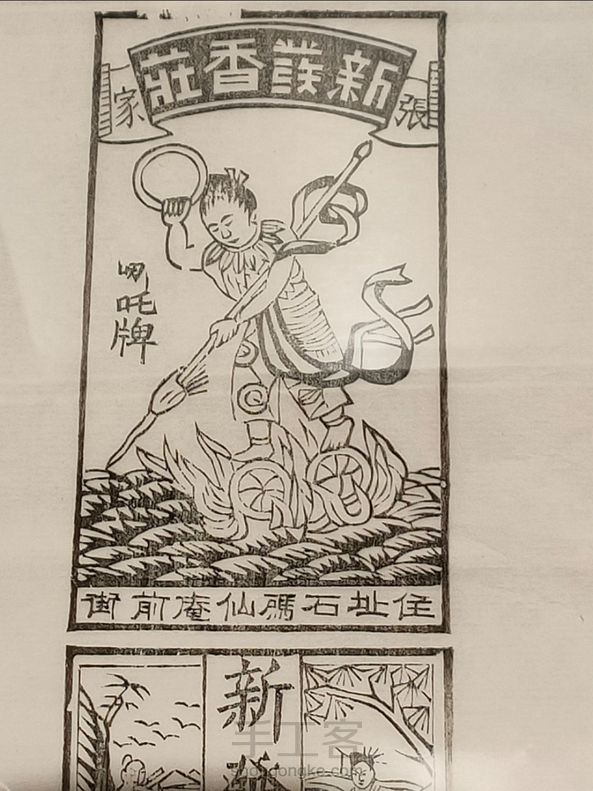 新發香莊
張家
哪吒牌
住址石碼仙庵前街
新
手工客
shougongke.com